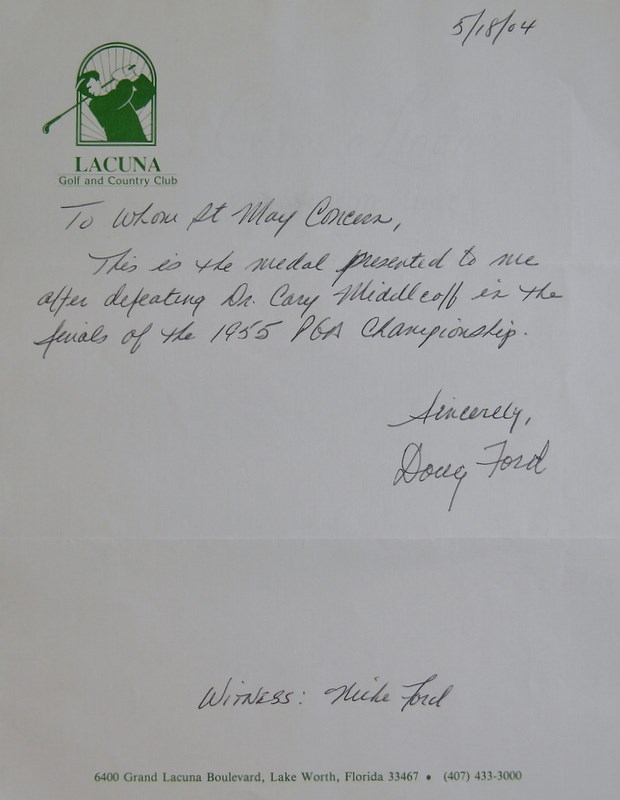 5/18/04
LACUNA
Golf and Country Club
To Whom It May Concern,
This is the medal presented to me
after defeating Dr. Cary Middlecoff in the
finals of the 1955 PGA Championship.
Sincerely,
Doug Ford
WITNESS: Mike Ford
6400 Grand Lacuna Boulevard, Lake Worth, Florida 33467 • (407) 433-3000